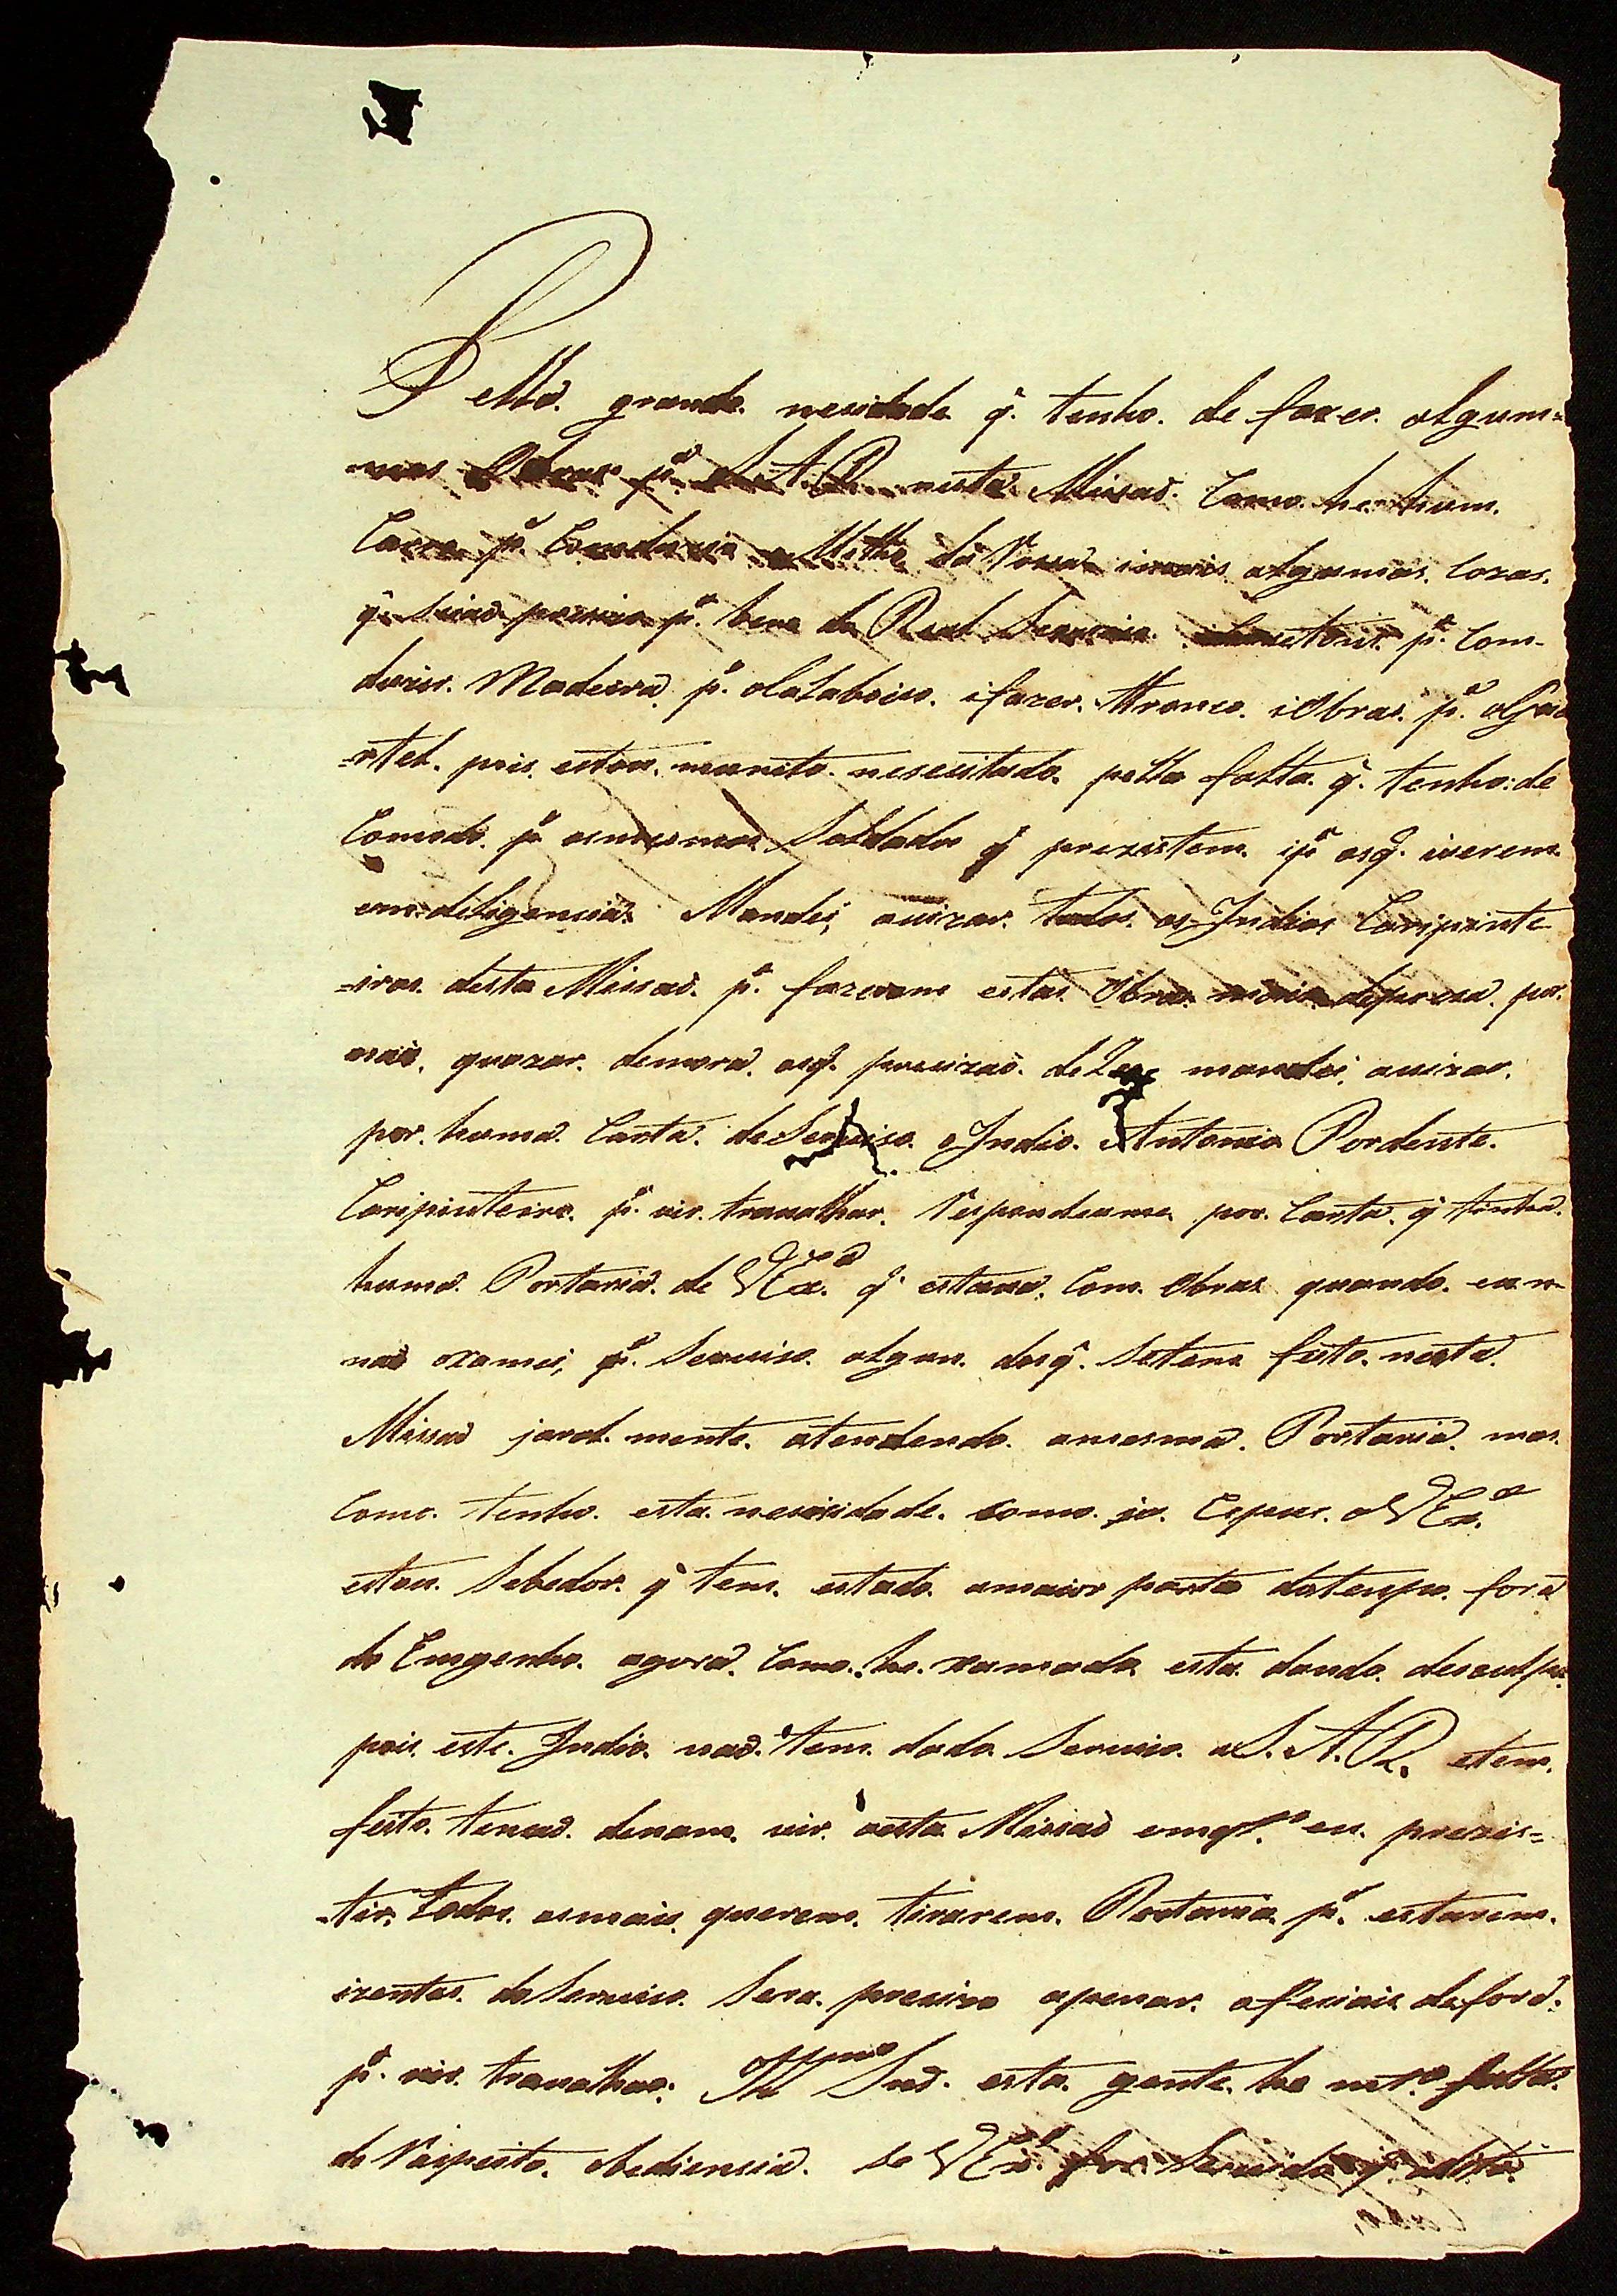 Pella. grande. nesidade q̃. tenho. de fazer. algum=
mas Obras pª. S. A. R. nesta Missaõ. Como. he. hum.
Carro pª. Comducaõ Milho da Rossa. imais algumas. Cozas.
q̃. Seiaõ presizo pª. bem do Real Serviso. pª. Com-
duzir. Madeira. pª. oCalaboiso. ifazer. ttronco. iObras. pª. oQua
=rtel. pois. estou. muncto. nesesitado. pella falta. q̃. tenho: de
Comodo. pª osmesmos Soldados q̃ prezistem. ipª osq̃. ivierem
emdeligencia. Mandei, auizar. todos. os Indios Caripinte
=iros. desta Missaõ. pª. fazerem estas Obras mais depresa. por.
naõ. quazar. demora. asq̃. presizaõ. de mandei, auizar.
por. huma. Carta. deServiso. oIndio. Antonio Pordente.
Caripinteiro. pª. vir. travalhar. Respondeume. por. Carta. q̃ tinha.
huma. Portaria. de VExª. q̃ estava. Com. Obras quando. eu n
naõ oxamei, pª. Serviso. algun. dosq̃. Setem feito. nesta.
Missaõ jaral.mente. atendendo. amesma. Portaria. mas.
Como. tenho. esta. nesisidade. como. ja. Espus. aVExª.
estou. Sebedor. q̃ tem. estado. amaior parte dotempo. fora
do Emgenho. agora. Como. he. xamado esta. dando. desculpa.
pois. este. Indio. naõ. tem. dado Serviso. aS. A. R. etem.
feito. tencaõ. denam. vir. aesta Missaõ emqtº. eu. prezis=
=tir. todos. osmais. querem. tirarem. Portaria pª. estarem.
izentos. doServiso. Sera. presizo apenar. ofesiais defora.
pª. vir. travalhar: Illmo Snõ. esta. gente. he mtª. falta.
de Respeito. obediensia. se VExª. for. Servido q̃.